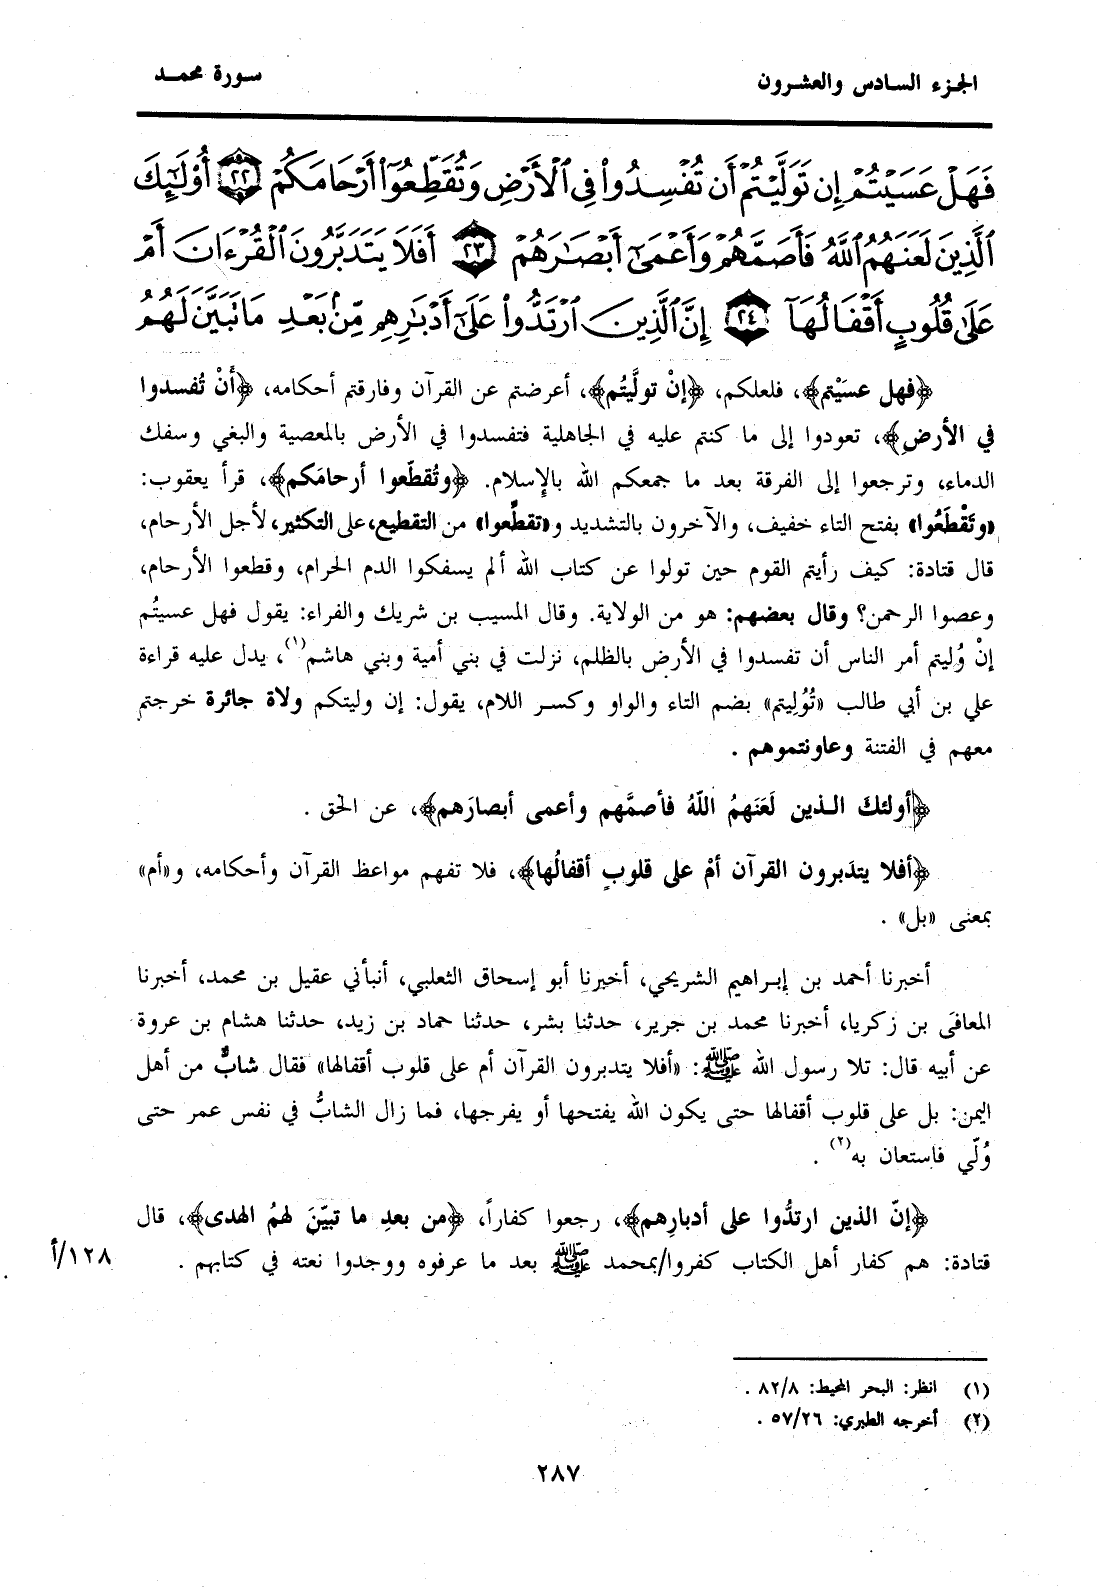 الجزء السادس والعشرون
سورة محمد
فَهَلْ عَسَيْتُمْ إِن تَوَلَّيْتُمْ أَن تُفْسِدُوا۟ فِى ٱلْأَرْضِ وَتُقَطِّعُوٓا۟ أَرْحَامَكُمْ ﴿٢٢﴾ أُو۟لَـٰٓئِكَ
ٱلَّذِينَ لَعَنَهُمُ ٱللَّهُ فَأَصَمَّهُمْ وَأَعْمَىٰٓ أَبْصَـٰرَهُمْ ﴿٢٣﴾ أَفَلَا يَتَدَبَّرُونَ ٱلْقُرْءَانَ أَمْ
عَلَىٰ قُلُوبٍ أَقْفَالُهَآ ﴿٢٤﴾ إِنَّ ٱلَّذِينَ ٱرْتَدُّوا۟ عَلَىٰٓ أَدْبَـٰرِهِم مِّنۢ بَعْدِ مَا تَبَيَّنَ لَهُمُ
﴿فهل عسَيْتم﴾، فلعلكم، ﴿إنْ تولَّيتُم﴾، أعرضتم عن القرآن وفارقتم أحكامه، ﴿أنْ تُفسدوا
في الأرضِ﴾، تعودوا إلى ما كنتم عليه في الجاهلية فتفسدوا في الأرض بالمعصية والبغي وسفك
الدماء، وترجعوا إلى الفرقة بعد ما جمعكم الله بالإسلام. ﴿وتُقطّعوا أرحامَكم﴾، قرأ يعقوب:
«وتَقْطَعُوا» بفتح التاء خفيف، والآخرون بالتشديد و«تقطِّعوا» من التقطيع، على التكثير، لأجل الأرحام،
قال قتادة: كيف رأيتم القوم حين تولوا عن كتاب الله ألم يسفكوا الدم الحرام، وقطعوا الأرحام،
وعصوا الرحمن؟ وقال بعضهم: هو من الولاية. وقال المسيب بن شريك والفراء: يقول فهل عسيتُم
إنْ وُليتم أمر الناس أن تفسدوا في الأرض بالظلم، نزلت في بني أمية وبني هاشم(١)، يدل عليه قراءة
علي بن أبي طالب «تُوُلِيتم» بضم التاء والواو وكسر اللام، يقول: إن وليتكم ولاة جائرة خرجتم
معهم في الفتنة وعاونتموهم .
﴿أولئكَ الذين لَعَنَهمُ اللّهُ فأصمَّهم وأعمى أبصارَهم﴾، عن الحق .
﴿أفلا يتدَبرون القرآن أمْ على قلوبٍ أقفالُها﴾، فلا تفهم مواعظ القرآن وأحكامه، و«أم»
بمعنى «بل» .
أخبرنا أحمد بن إبراهيم الشريحي، أخبرنا أبو إسحاق الثعلبي، أنبأني عقيل بن محمد، أخبرنا
المعافَى بن زكريا، أخبرنا محمد بن جرير، حدثنا بشر، حدثنا حماد بن زيد، حدثنا هشام بن عروة
عن أبيه قال: تلا رسول الله ﷺ: «أفلا يتدبرون القرآن أم على قلوب أقفالها» فقال شابٌّ من أهل
اليمن: بل على قلوب أقفالها حتى يكون الله يفتحها أو يفرجها، فما زال الشابُّ في نفس عمر حتى
وُلّي فاستعان به(٢) .
﴿إنّ الذين ارتدُّوا على أدبارِهم﴾، رجعوا كفاراً، ﴿من بعدِ ما تبيّنَ لهمُ الهدى﴾، قال
قتادة: هم كفار أهل الكتاب كفروا/بمحمد ﷺ بعد ما عرفوه ووجدوا نعته في كتابهم .
١٢٨/أ
(١) انظر: البحر المحيط: ٨٢/٨ .
(٢) أخرجه الطبري: ٥٧/٢٦ .
٢٨٧